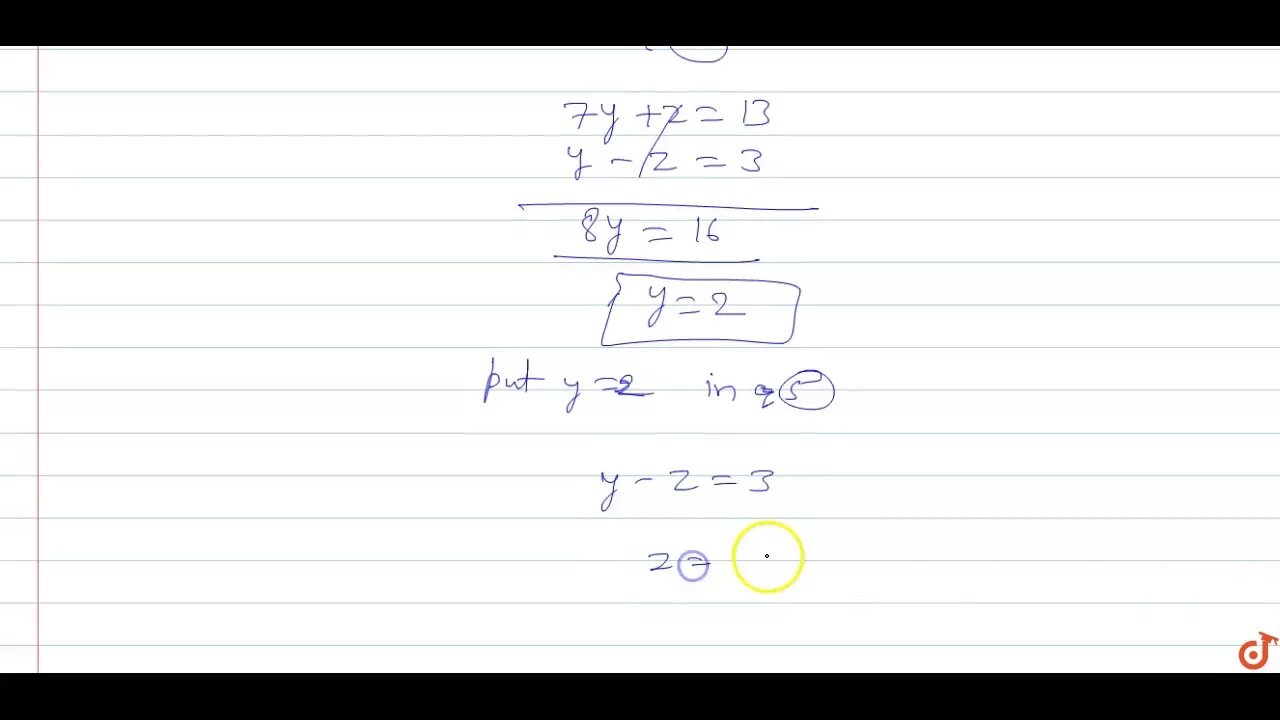 7y + z = 13
y - z = 3
8y = 16
y = 2
put y = 2 in eq 5
y - z = 3
z =